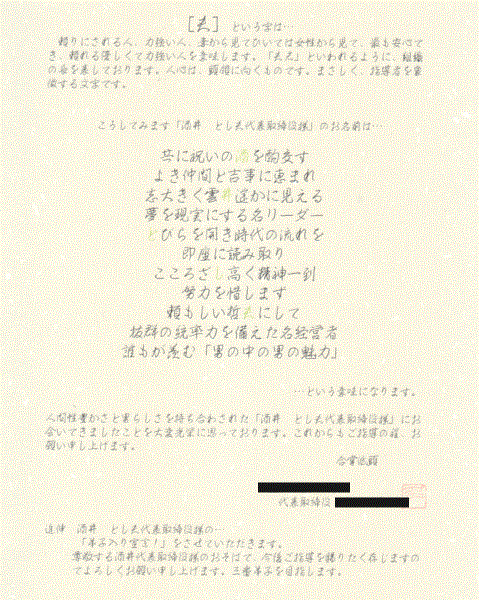 [夫] という字は…
頼りにされる人、力強い人、妻から見てひいては女性から見て、最も安心でき
き、頼れる優しくて力強い人を意味します。「大丈夫」といわれるように、組織
の長を表しております。人心は、頭領に向くものです。まさしく、指導者を象
徴する文字です。
こうしてみます「酒井 とし夫代表取締役様」のお名前は…
共に祝いの酒を酌交す
よき仲間と吉事に恵まれ
志大きく雲井遥かに見える
夢を現実にする名リーダー
とびらを開き時代の流れを
即座に読み取り
こころざし高く精神一到
努力を惜します
頼もしい哲夫にして
抜群の統率力を備えた名経営者
誰もが羨む「男の中の男の魅力」
…という意味になります。
人間性豊かさと男らしさを持ち合わされた「酒井 とし夫代表取締役様」にお
会いできましたことを大変光栄に思っております。これからもご指導の程、お
願い申し上げます。
合掌低頭
代表取締役
追伸 酒井 とし夫代表取締役様の…
「弟子入り宣言！」をさせていただきます。
尊敬する酒井代表取締役様のおそばで、今後ご指導を賜りたく存じますの
でよろしくお願い申し上げます。三番弟子を目指します。